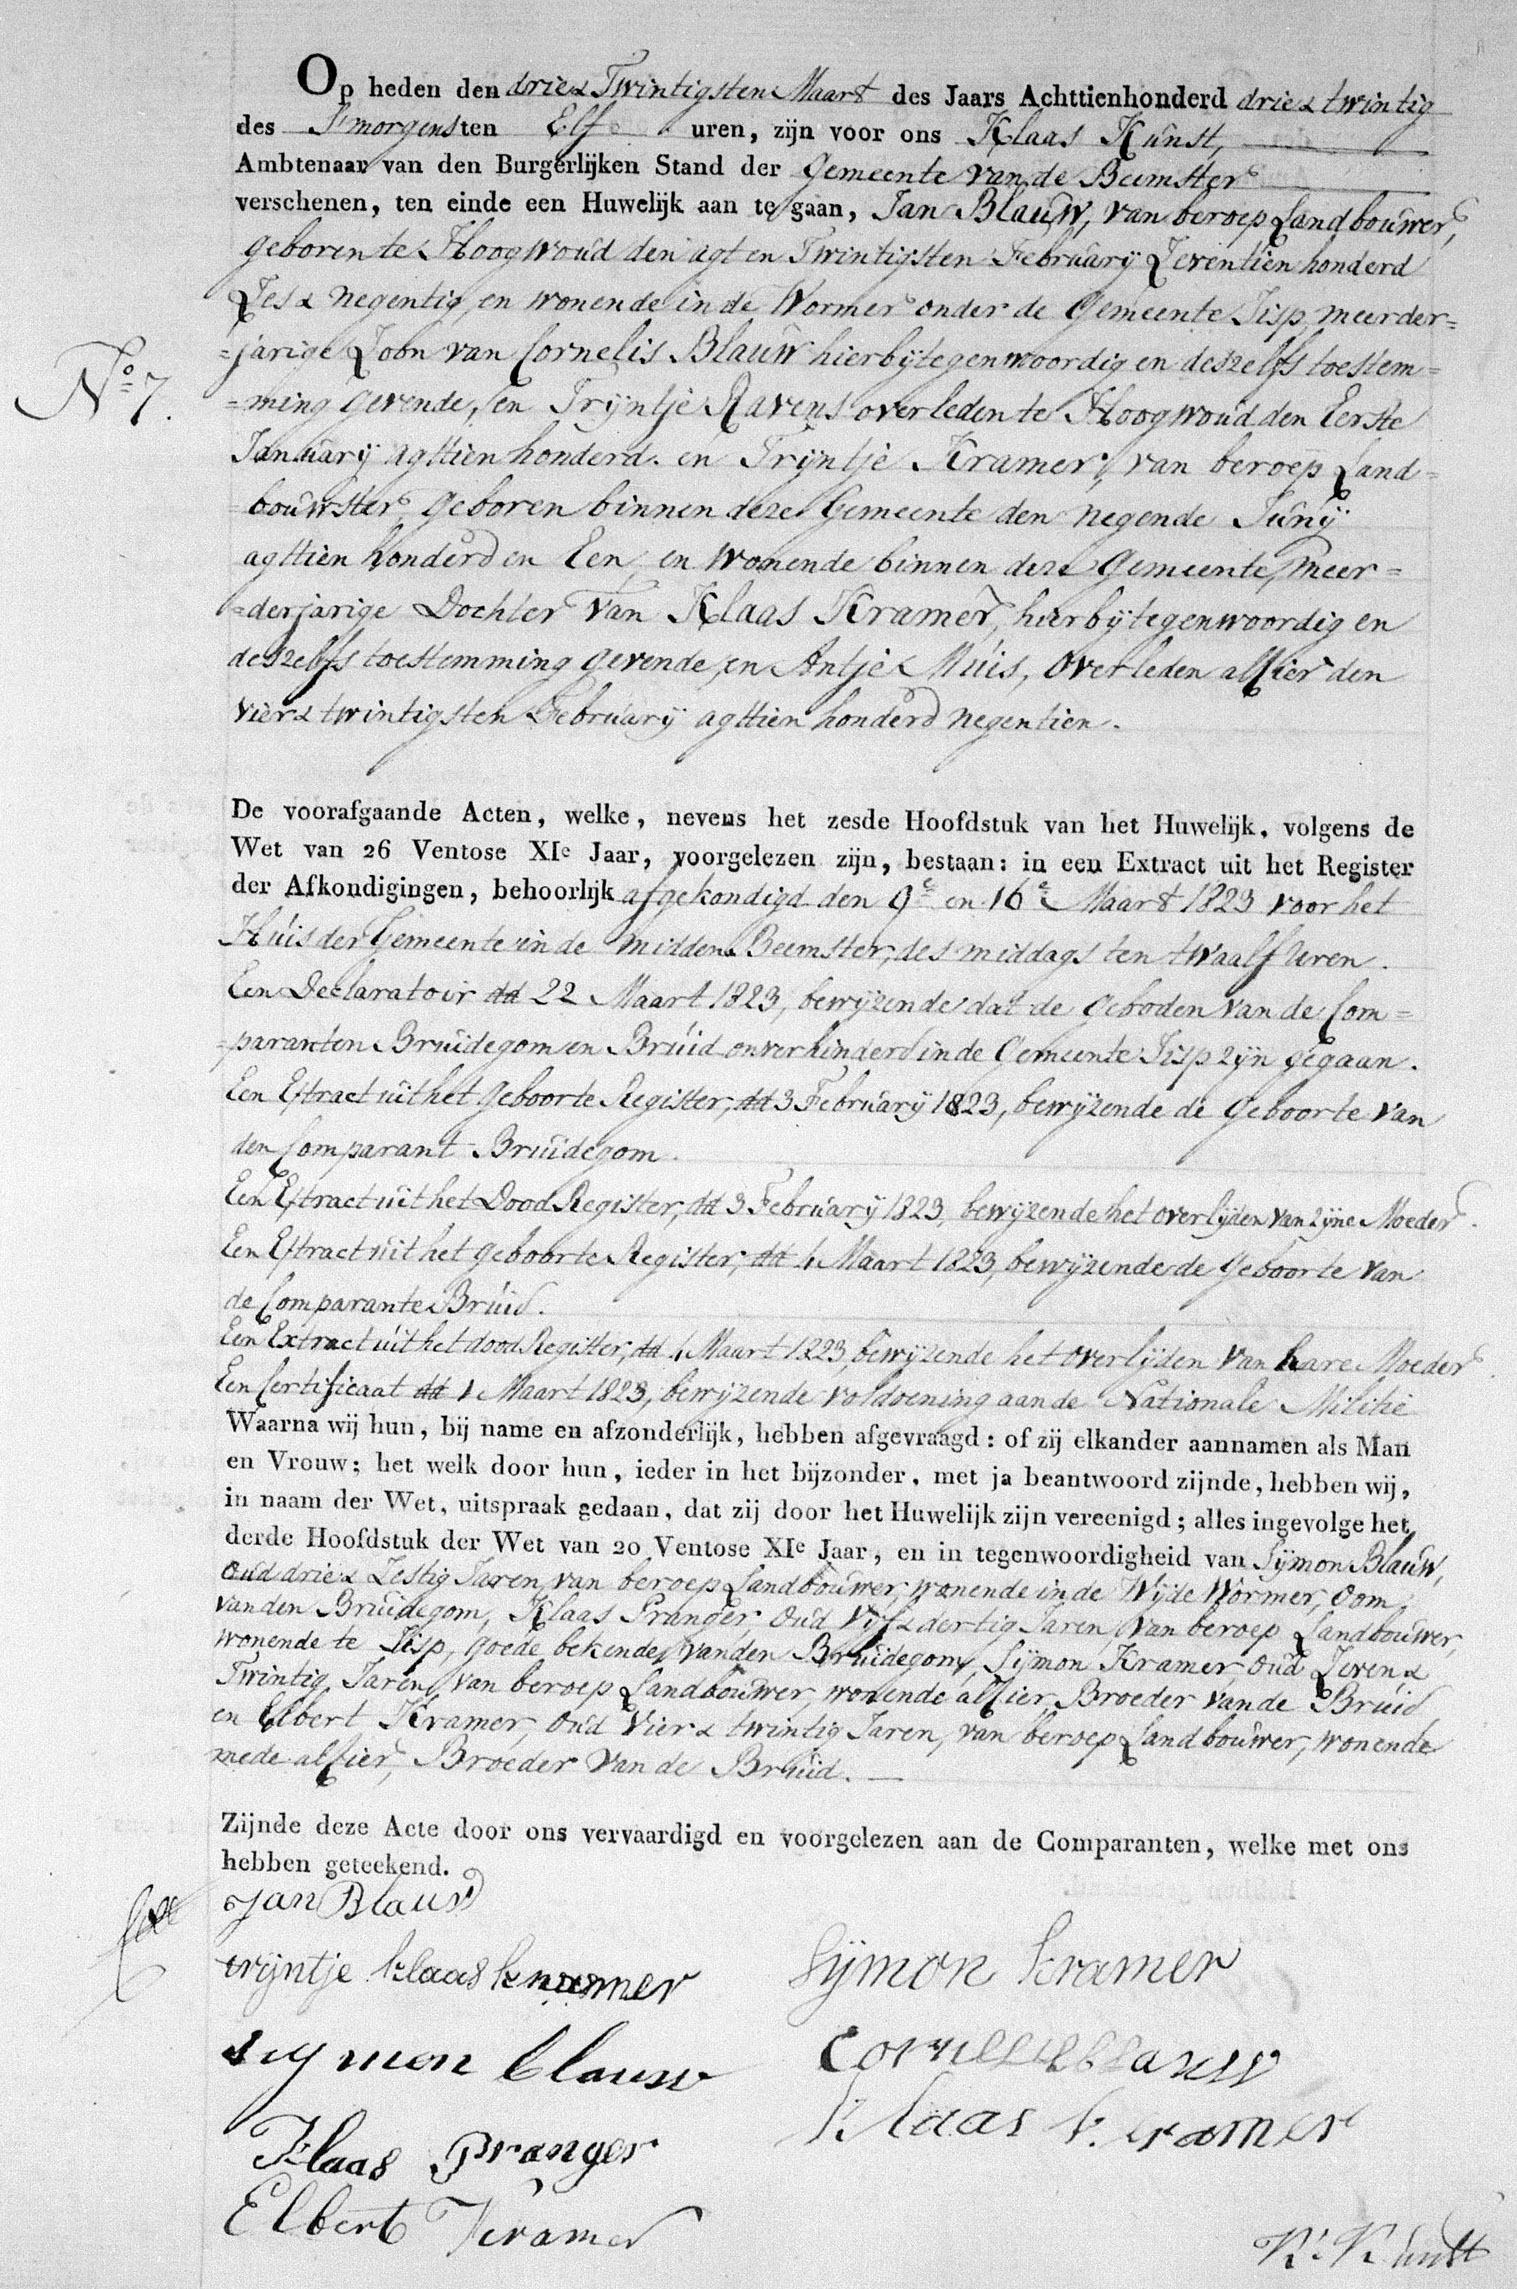 Op heden den drie & Twintigsten Maart des Jaars Achttienhonderd drie & twintig
des S'morgens ten Elf uren, zijn voor ons Klaas Kunst,
Ambtenaar van den Burgerlijken Stand der Gemeente van de Beemster
verschenen, ten einde een Huwelijk aan te gaan, Jan Blauw, van beroep Landbouwer,
geboren te Hoogwoud den agt en Twintigsten February Zeventien honderd
Zes & negentig, en wonende in de Wormer onder de Gemeente Jisp, meerder=
No 7.
=jarige Zoon van Cornelis Blauw hierbij tegenwoordig en deszelfs toestem=
=ming gevende, en Trijntje Ravens overleden te Hoogwoud den Eerste
January agttien honderd. en Trijntje Kramer, van beroep Land=
=bouwster, geboren binnen deze Gemeente den negende Junij
agttien honderd en Een, en wonende binnen deze Gemeente, meer=
=derjarige Dochter van Klaas Kramer, hierbij tegenwoordig en
deszelfs toestemming gevende, en Antje Muis, overleden alhier den
vier & twintigsten February agttien honderd negentien.
De voorafgaande Acten, welke, nevens het zesde Hoofdstuk van het Huwelijk, volgens de
Wet van 26 Ventose XIe Jaar, voorgelezen zijn, bestaan: in een Extract uit het Register
der Afkondigingen, behoorlijk afgekondigd den 9e en 16e Maart 1823 voor het
Huis der Gemeente in de midden Beemster, des middags ten twaalf Uren.
Een Declaratoir dd 22 Maart 1823, bewijzende dat de geboden van de Com=
=paranten Bruidegom en Bruid onverhinderd in de Gemeente Jisp zijn gegaan.
Een Extract uit het geboorte Register, dd 3 February 1823, bewijzende de Geboorte van
den Comparant Bruidegom.
Een Extract uit het Dood Register, dd 3 February 1823, bewijzende het overlijden van zijne Moeder.
Een Extract uit het geboorte Register, dd 1 Maart 1823, bewijzende de Geboorte van
de Comparante Bruid.
Een Extract uit het dood Register, dd 1 Maart 1823, bewijzende het overlijden van hare Moeder.
Een Certificaat dd 1 Maart 1823, bewijzende voldoening aan de Nationale Militie
Waarna wij hun, bij name en afzonderlijk, hebben afgevraagd: of zij elkander aannamen als Man
en Vrouw; het welk door hun, ieder in het bijzonder, met ja beantwoord zijnde, hebben wij,
in naam der Wet, uitspraak gedaan, dat zij door het Huwelijk zijn vereenigd; alles ingevolge het
derde Hoofdstuk der Wet van 20 Ventose XIe Jaar, en in tegenwoordigheid van Sijmon Blauw,
oud drie & Zestig Jaren, van beroep Landbouwer, wonende in de Wijde Wormer, Oom
van den Bruidegom, Klaas Pranger, oud vijf & dertig Jaren, van beroep Landbouwer,
wonende te Jisp, goede bekende van den Bruidegom, Sijmon Kramer, oud Zeven &
Twintig Jaren, van beroep Landbouwer, wonende alhier, Broeder van de Bruid
en Elbert Kramer, oud Vier & twintig Jaren, van beroep Landbouwer, wonende
mede alhier, Broeder van de Bruid.
Zijnde deze Acte door ons vervaardigd en voorgelezen aan de Comparanten, welke met ons
hebben geteekend.
Jan Blauw
trijntje klaas kramer
Sijmon Kramer
sijmon blauw
Cornelis blaauw
Klaas Kramer
Klaas Pranger
Elbert Kramer
Ks. Kunst